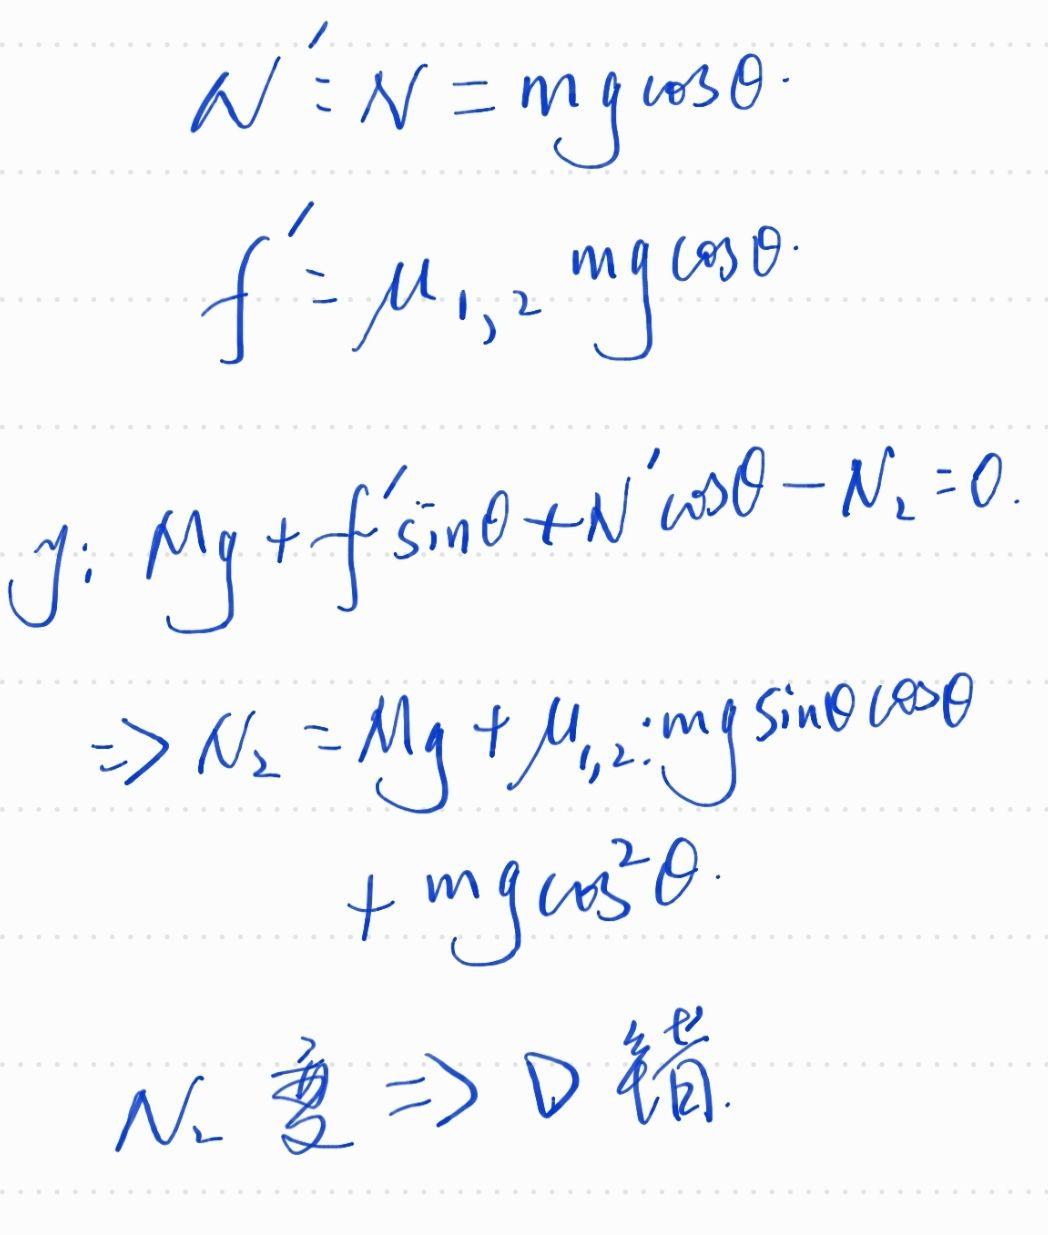 N′=N=mgcosθ.
f′=μ₁,₂mgcosθ.
y: Mg+f′sinθ+N′cosθ−N₂=0.
⇒N₂=Mg+μ₁,₂·mgsinθcosθ
+mgcos²θ.
N₂变⇒D错.